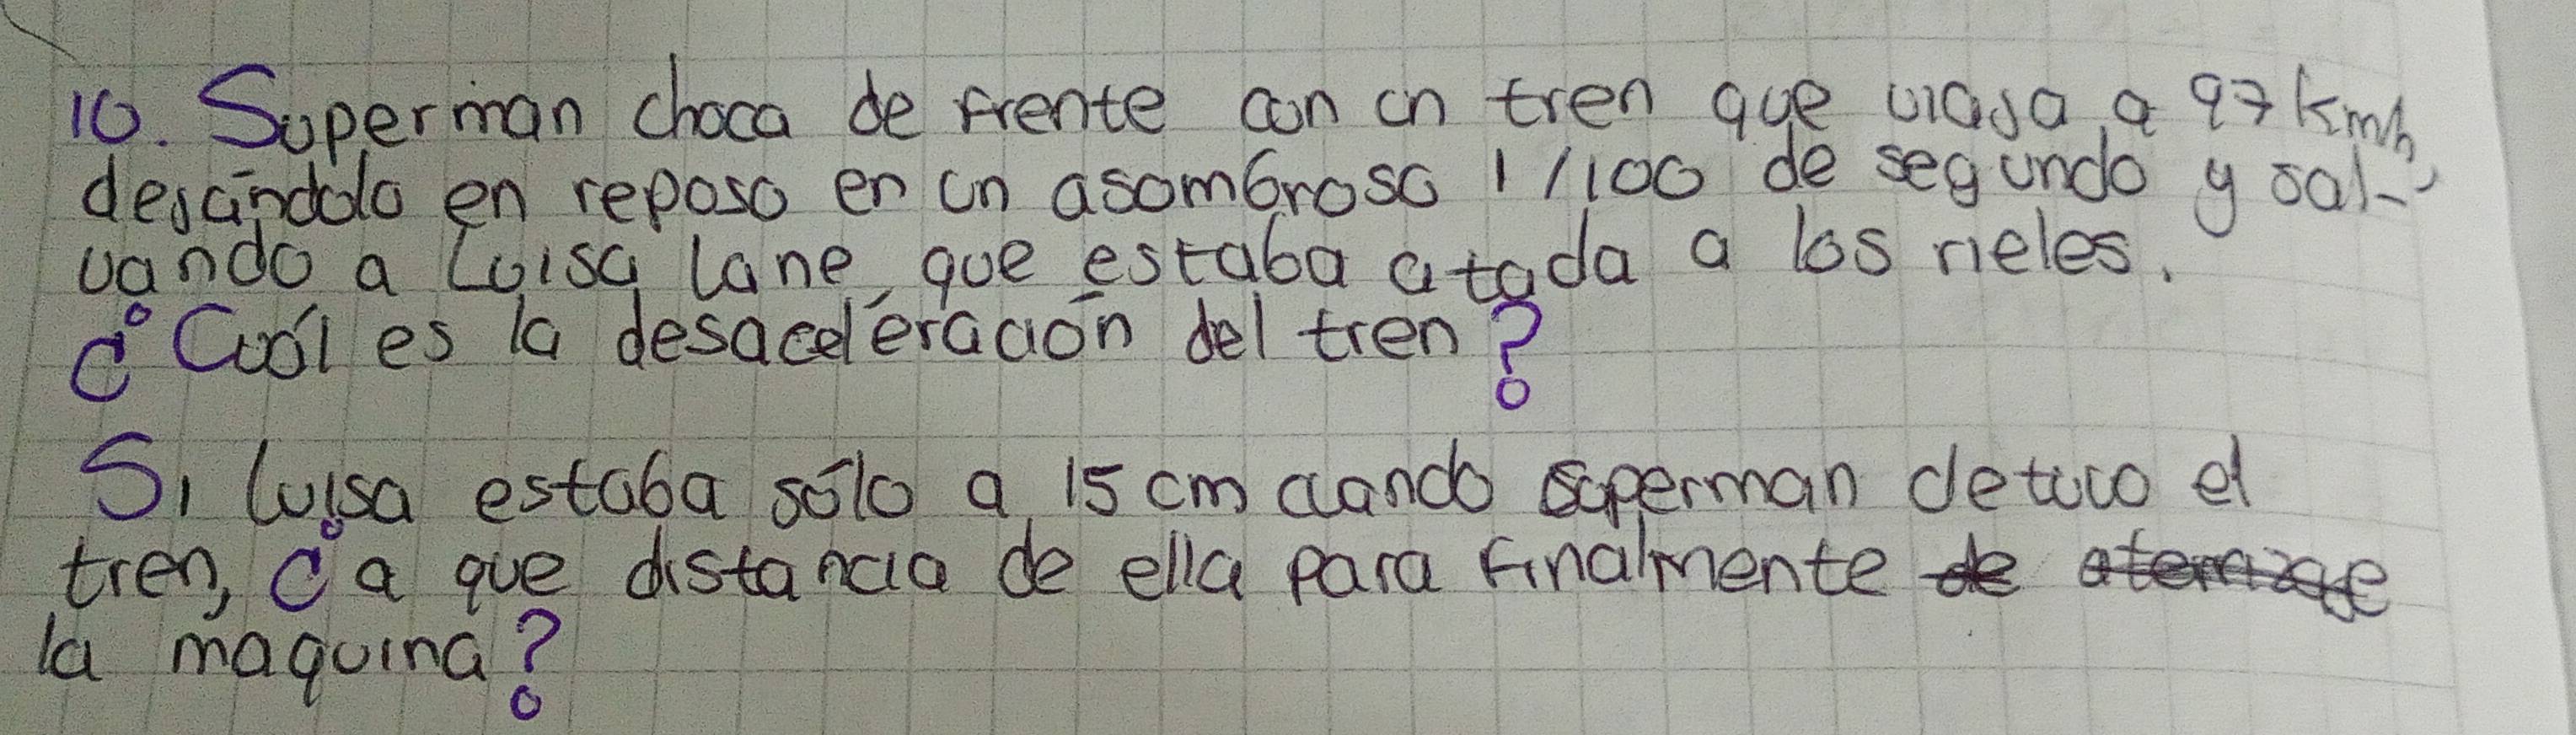 10. Superman choca de frente con un tren que viaja a 97 km/h,
dejándolo en reposo en un asombroso 1/100 de segundo y sal-
vando a Luisa Lane, que estaba atada a los rieles.
¿Cuál es la desaceleración del tren?
Si Luisa estaba sólo a 15 cm cuando superman detuvo el
tren, ¿a que distancia de ella para finalmente de aterrizae
la maquina?